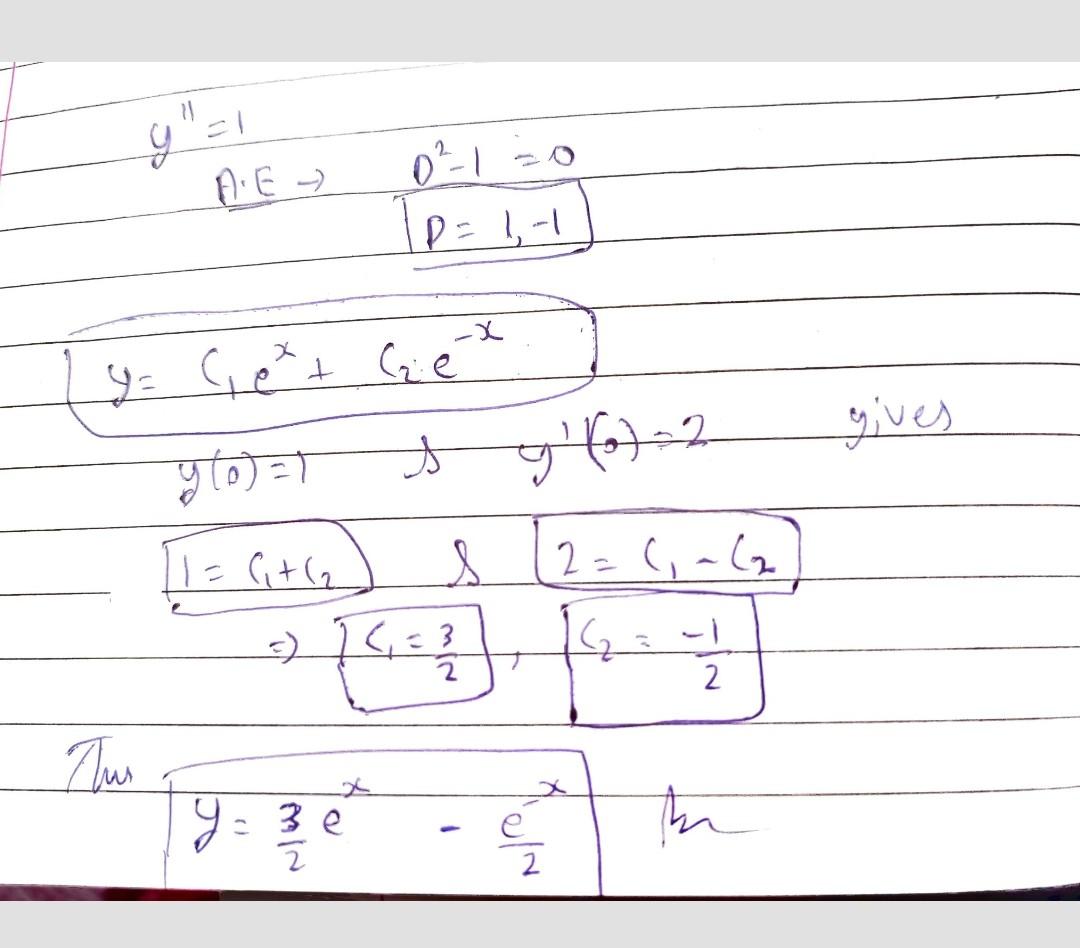 y'' = 1
A.E → D² - 1 = 0
D = 1, -1
y = C₁eˣ + C₂e⁻ˣ
y(0) = 1 & y'(0) = 2 gives
1 = C₁ + C₂ & 2 = C₁ - C₂
⇒ C₁ = 3/2 , C₂ = -1/2
Thus
y = 3/2 eˣ - e⁻ˣ/2